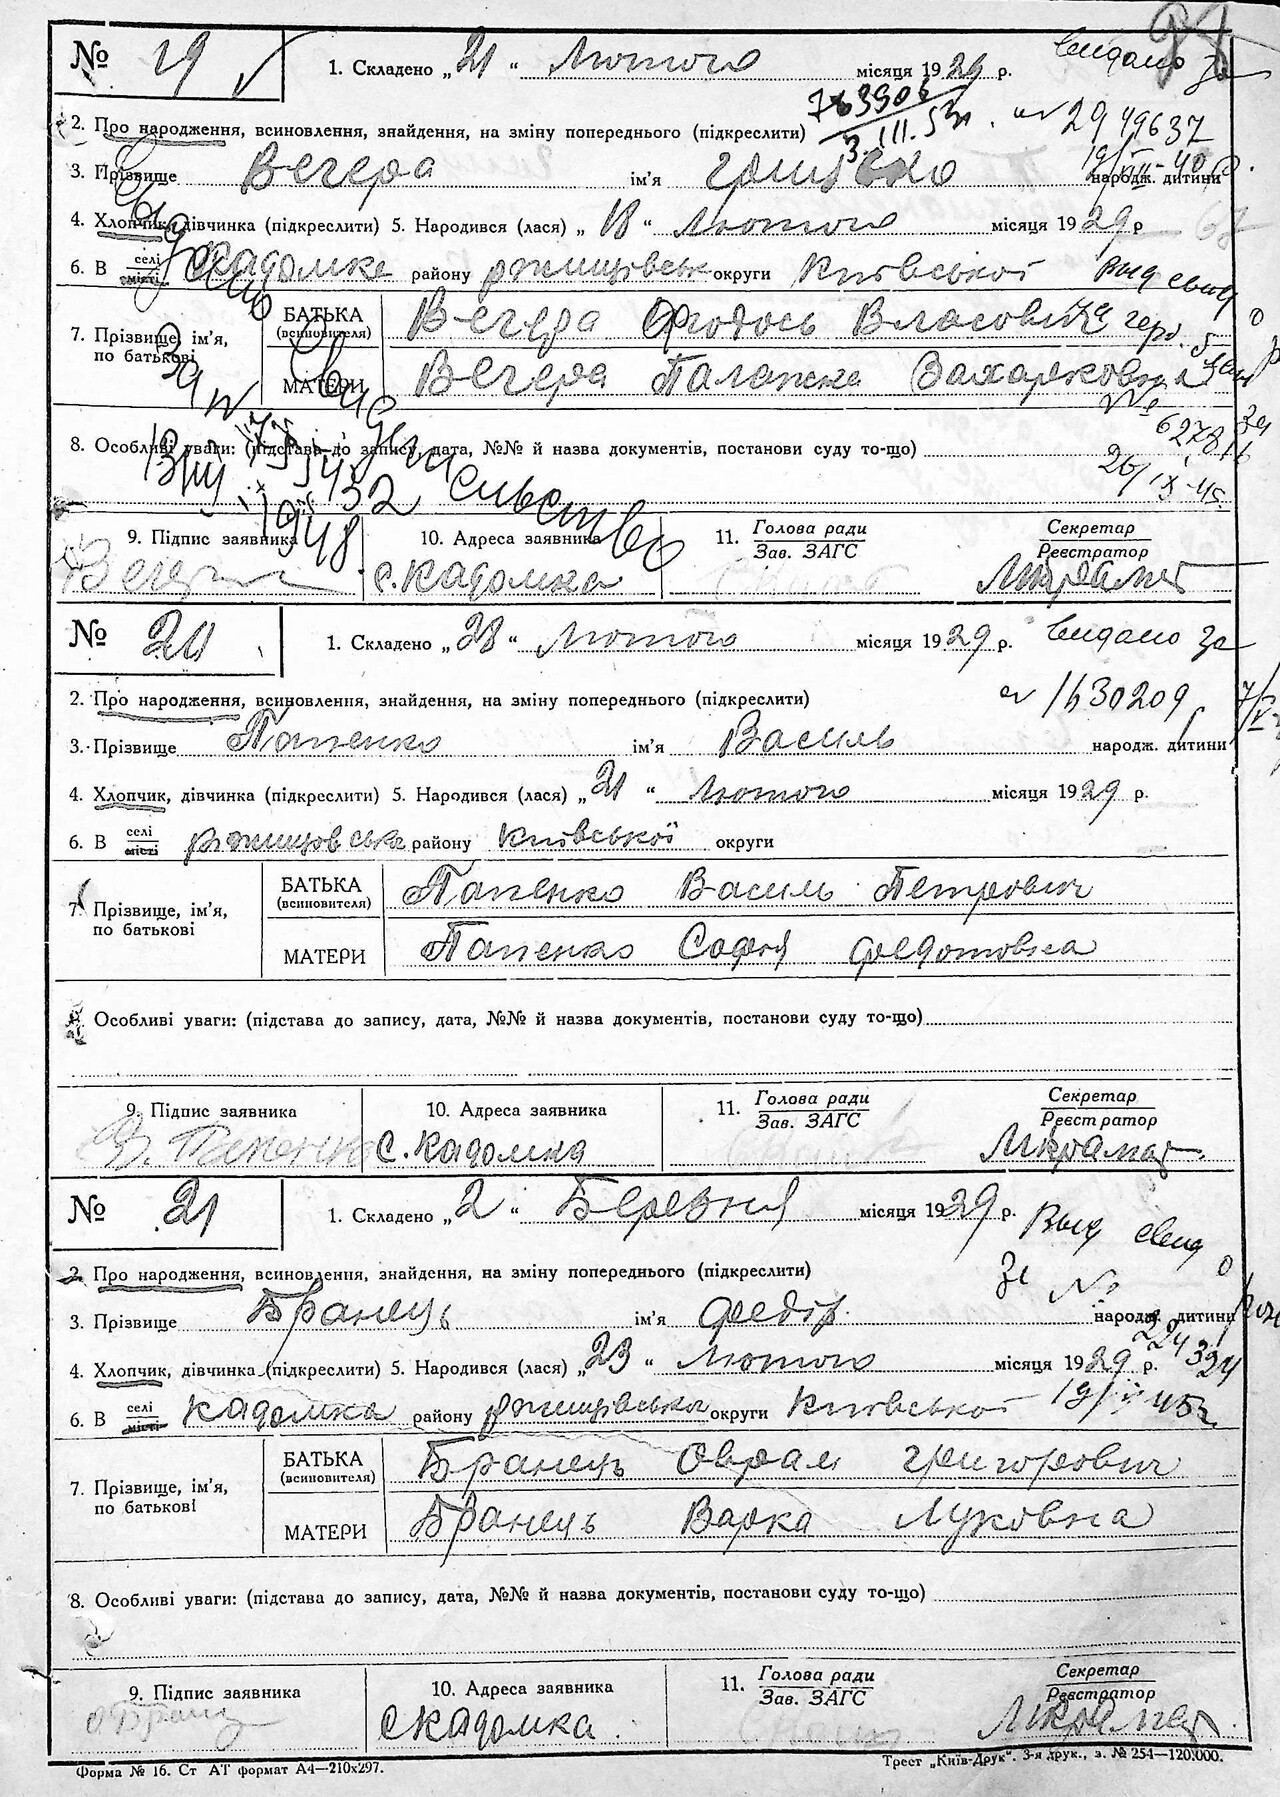 № 19
1. Складено „21“ Лютого місяця 1929 р.
Видано за
763906
3.III.53
2. Про народження, всиновлення, знайдення, на зміну попереднього (підкреслити)
№ 2949637
3. Прізвище Вечера ім'я Гришко народж. дитини
4. Хлопчик, дівчинка (підкреслити) 5. Народився (лася) „18“ Лютого місяця 1929 р
6. В селі/місті Кадомке району ржищівськ округи Київської
Выд свид о
7. Прізвище, ім'я, по батькові
БАТЬКА (всиновителя) Вечера Феодось Власович
МАТЕРИ Вечера Палажка Захарковна
№ 627816
26/IX-45.
8. Особливі уваги: (підстава до запису, дата, №№ й назва документів, постанови суду то-що)
Свидетельство
1948
9. Підпис заявника
10. Адреса заявника с. Кадомка
11. Голова ради / Зав. ЗАГС
Секретар / Реєстратор
№ 20
1. Складено „28“ Лютого місяця 1929 р.
Видано за
2. Про народження, всиновлення, знайдення, на зміну попереднього (підкреслити)
№ 1630209
3. Прізвище Папенко ім'я Василь народж. дитини
4. Хлопчик, дівчинка (підкреслити) 5. Народився (лася) „21“ Лютого місяця 1929 р.
6. В селі/місті ржищовська району Київської округи
7. Прізвище, ім'я, по батькові
БАТЬКА (всиновителя) Папенко Василь Петрович
МАТЕРИ Папенко Софія Федотовна
Особливі уваги: (підстава до запису, дата, №№ й назва документів, постанови суду то-що)
9. Підпис заявника В. Папенко
10. Адреса заявника с. Кадомка
11. Голова ради / Зав. ЗАГС
Секретар / Реєстратор
№ 21
1. Складено „2“ Березня місяця 1929 р.
Выд свид о
2. Про народження, всиновлення, знайдення, на зміну попереднього (підкреслити)
За №
3. Прізвище Бранець ім'я Федір народж. дитини
224324
4. Хлопчик, дівчинка (підкреслити) 5. Народився (лася) „23“ Лютого місяця 1929 р.
6. В селі/місті Кадомка району ржищівська округи Київської
7. Прізвище, ім'я, по батькові
БАТЬКА (всиновителя) Бранець Оврам Григорович
МАТЕРИ Бранець Варка Луковна
8. Особливі уваги: (підстава до запису, дата, №№ й назва документів, постанови суду то-що)
9. Підпис заявника О Бранц
10. Адреса заявника с Кадомка.
11. Голова ради / Зав. ЗАГС
Секретар / Реєстратор
Форма № 16. Ст АТ формат А4—210х297.
Трест „Київ-Друк“. 3-я друк., з. № 254—120.000.